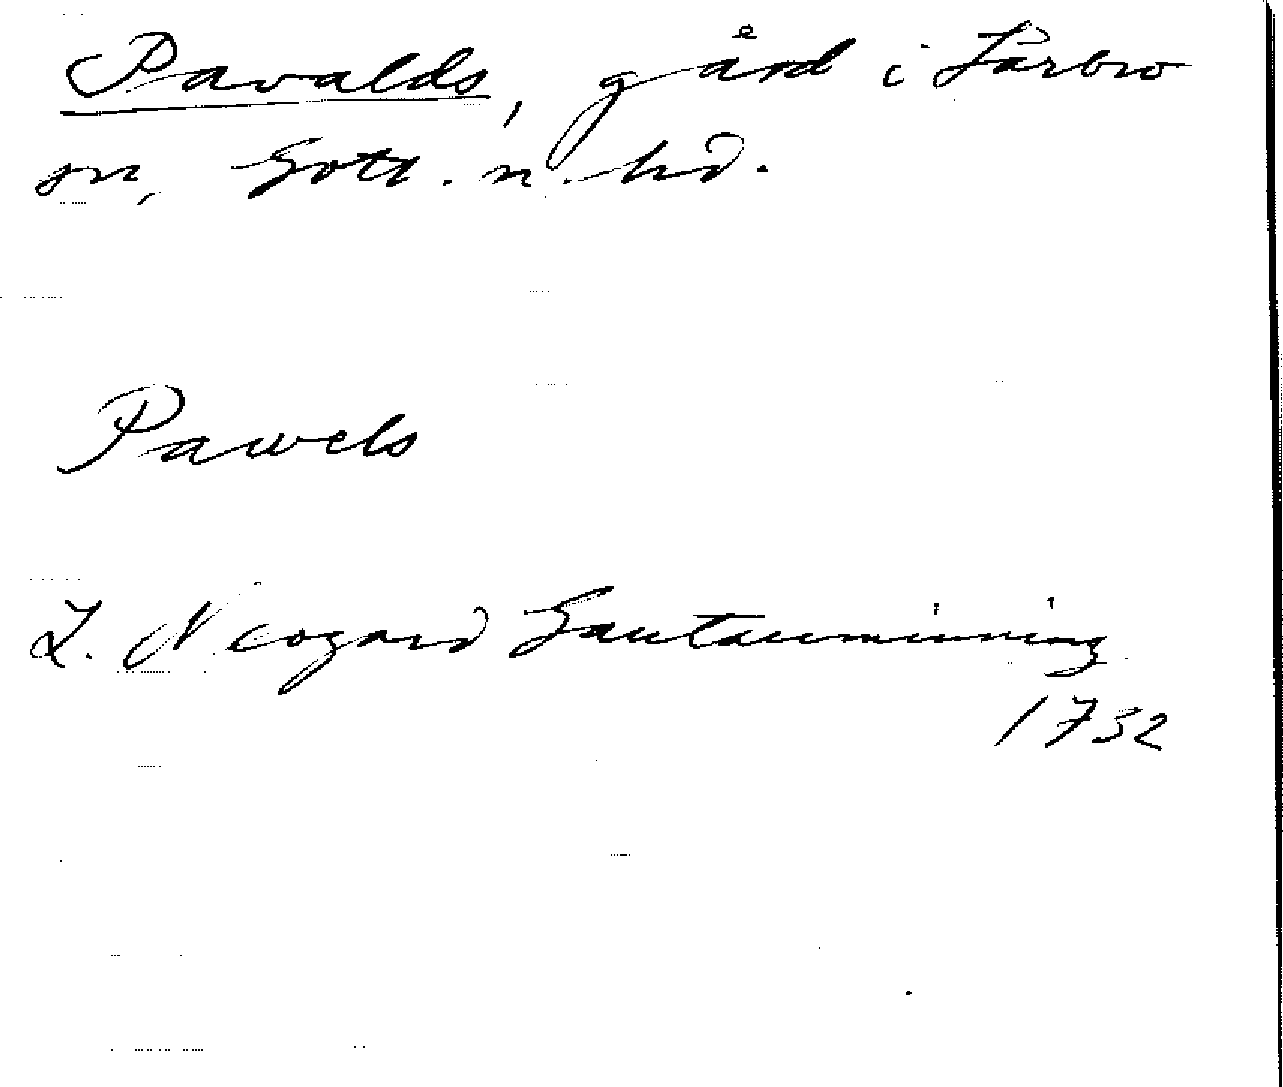 Pavalds, gård i Lärbro
sn, Gotl. n. hd.
Pawels
L. Neogard Gautauminning
1732